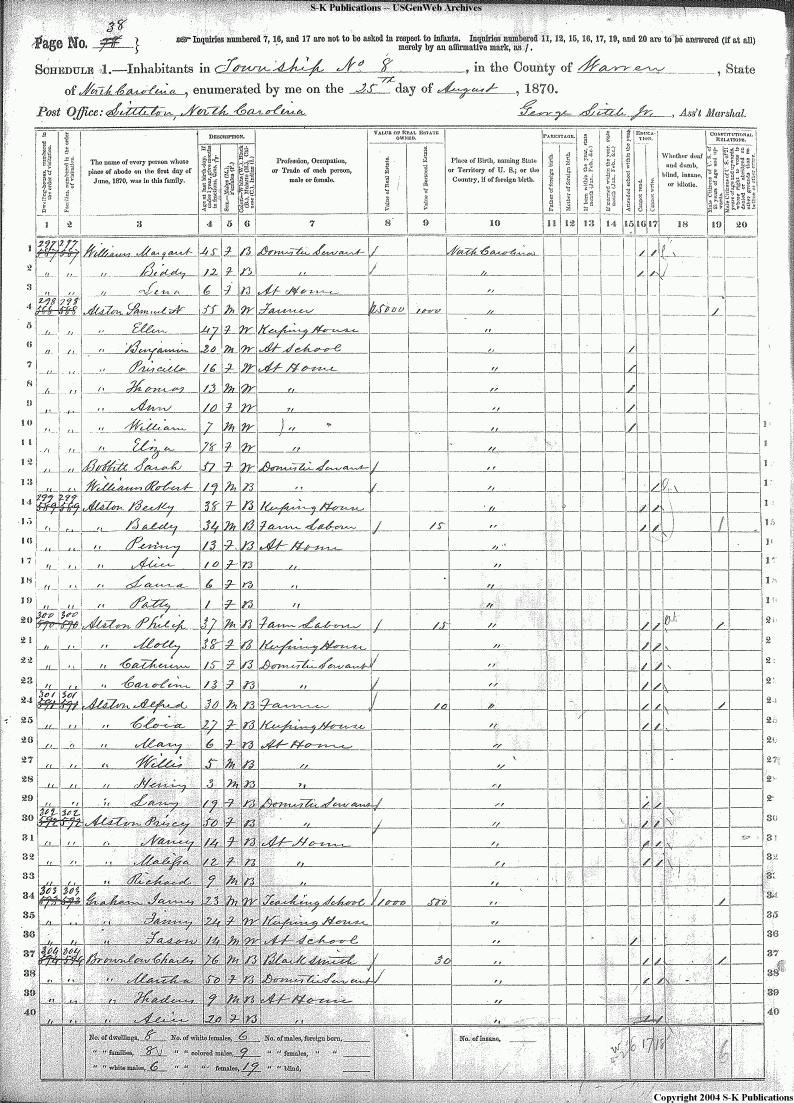 S-K Publications -- USGenWeb Archives
38
Page No.
Inquiries numbered 7, 16, and 17 are not to be asked in respect to infants. Inquiries numbered 11, 12, 15, 16, 17, 19, and 20 are to be answered (if at all) merely by an affirmative mark, as /.
SCHEDULE 1.—Inhabitants in Township No 8, in the County of Warren, State
of North Carolina, enumerated by me on the 25th day of August, 1870.
Post Office: Littleton, North Carolina George Little Jr, Ass't Marshal.
DESCRIPTION. VALUE OF REAL ESTATE OWNED. PARENTAGE. EDUCATION. CONSTITUTIONAL RELATIONS.
Dwelling-houses numbered in the order of visitation. Families numbered in the order of visitation. The name of every person whose place of abode on the first day of June, 1870, was in this family. Profession, Occupation, or Trade of each person, male or female. Value of Real Estate. Value of Personal Estate. Place of Birth, naming State or Territory of U. S.; or the Country, if of foreign birth. Father of foreign birth. Mother of foreign birth. Attended school within the year. Cannot read. Cannot write. Whether deaf and dumb, blind, insane, or idiotic.
1 2 3 4 5 6 7 8 9 10 11 12 13 14 15 16 17 18 19 20
1 297 297 Williams Margaret 45 F B Domestic Servant / North Carolina / /
2 " " " Biddy 12 F B " / " / /
3 " " " Lena 6 F B At Home "
4 298 298 Alston Samuel 55 M W Farmer 1000 " /
5 " " " Ellen 47 F W Keeping House "
6 " " " Benjamin 20 M W At School " /
7 " " " Priscilla 16 F W At Home " /
8 " " " Thomas 13 M W " " /
9 " " " Ann 10 F W " " /
10 " " " William 7 M W " " " /
11 " " " Eliza 78 F W " "
12 " " Bobbitt Sarah 57 F W Domestic Servant / "
13 " " Williams Robert 19 M B " / " /
14 299 299 Alston Becky 38 F B Keeping House " / /
15 " " " Baldy 34 M B Farm Labour / 15 " / / /
16 " " " Penny 13 F B At Home "
17 " " " Alice 10 F B " "
18 " " " Laura 6 F B " "
19 " " " Patty 1 F B " "
20 300 300 Alston Philip 37 M B Farm Labour / 15 " / / /
21 " " " Molly 38 F B Keeping House " / /
22 " " " Catherine 15 F B Domestic Servant / " / /
23 " " " Caroline 13 F B " / " / /
24 301 301 Alston Alfred 30 M B Farmer / 10 " / / /
25 " " " 27 F B Keeping House " / /
26 " " " Mary 6 F B At Home "
27 " " " Willis 5 M B " "
28 " " " Henry 3 M B " "
29 " " " 19 F B Domestic Servant / " / /
30 302 302 Alston Priscy 50 F B " / " / /
31 " " " Nancy 14 F B At Home " / /
32 " " " Malissa 12 F B " " / /
33 " " " Richard 9 M B " "
34 303 303 Graham James 23 M W Teaching School 1000 500 " /
35 " " " Fanny 24 F W Keeping House "
36 " " " Jason 14 M W At School " /
37 304 304 Brownlow Charles 76 M B Black Smith / 30 " / / /
38 " " " Martha 50 F B Domestic Servant / " / /
39 " " " Thadeus 9 M B At Home "
40 " " " Alice 20 F B " " / /
No. of dwellings, 8 No. of white females, 6 No. of males, foreign born, No. of insane,
" " families, 8 " " colored males, 9 " " females, " "
" " white males, 6 " " " females, 19 " " blind,
Copyright 2004 S-K Publications